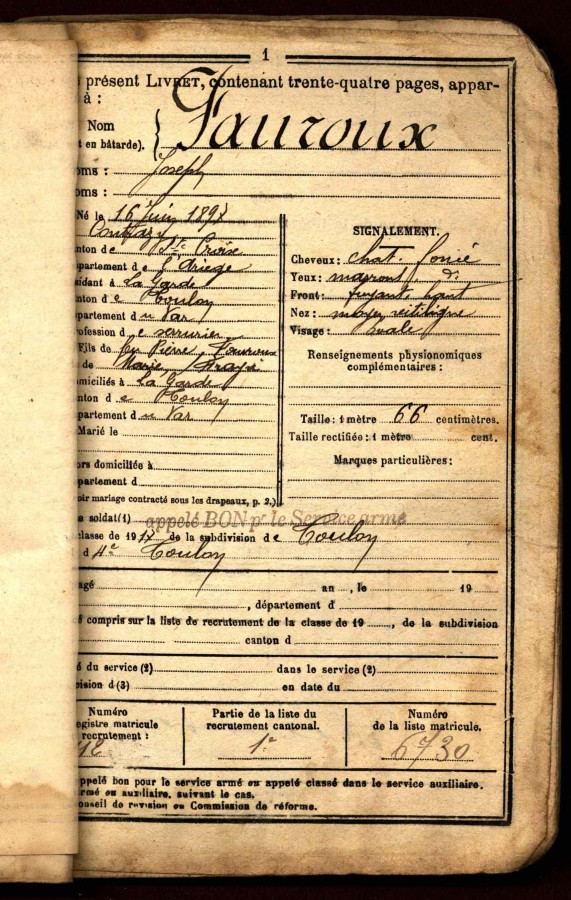 1
présent LIVRET, contenant trente-quatre pages, appar-
à :
Nom Fauroux
en bâtarde).
oms : Joseph
oms :
Né le 16 Juin 1897
Contrazy
nton de Ste Croix
partement de l'Ariège
sidant à La Garde
nton de Toulon
partement du Var
rofession de serrurier
Fils de feu Pierre, Fauroux
de Marie,
miciliés à La Garde
nton de Toulon
partement du Var
Marié le
ors domiciliés à
partement d
oir mariage contracté sous les drapeaux, p. 2.)
SIGNALEMENT.
Cheveux : chat. foncé
Yeux : marront d°
Front : fuyant, haut
Nez : moyen rectiligne
Visage : ovale
Renseignements physionomiques
complémentaires :
Taille : 1 mètre 66 centimètres.
Taille rectifiée : 1 mètre cent.
Marques particulières :
soldat(1) appelé BON pr le Service armé
classe de 1917 de la subdivision de Toulon
d Toulon
agé an , le 19
, département d
é compris sur la liste de recrutement de la classe de 19 , de la subdivision
canton d
é du service (2) dans le service (2)
vision d (3) en date du
Numéro
egistre matricule
recrutement :
Partie de la liste du
recrutement cantonal.
1e
Numéro
de la liste matricule.
6730
ppelé bon pour le service armé ou appelé classé dans le service auxiliaire.
rmé ou auxiliaire, suivant le cas.
onseil de revision ou Commission de réforme.